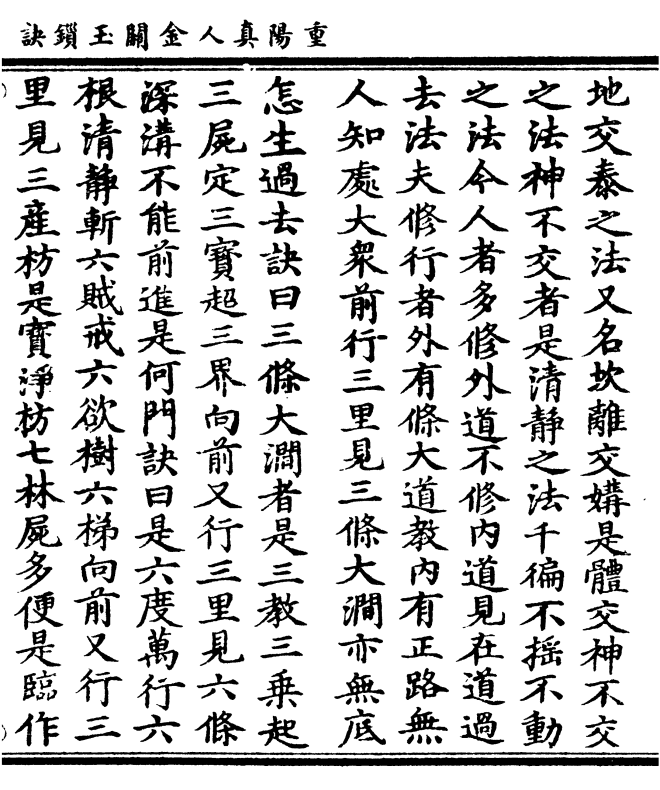 重陽真人金關玉鎖訣
地交泰之法又名坎離交媾是體交神不交
之法神不交者是清静之法千徧不摇不動
之法今人者多修外道不修内道見在道過
去法夫修行者外有條大道教内有正路無
人知處大衆前行三里見三條大澗亦無底
怎生過去訣曰三條大澗者是三教三乗起
三屍定三寳超三界向前又行三里見六條
深溝不能前進是何門訣曰是六度萬行六
根清静斬六賊戒六欲樹六梯向前又行三
里見三産枋是寳淨枋七林屍多便是臨作